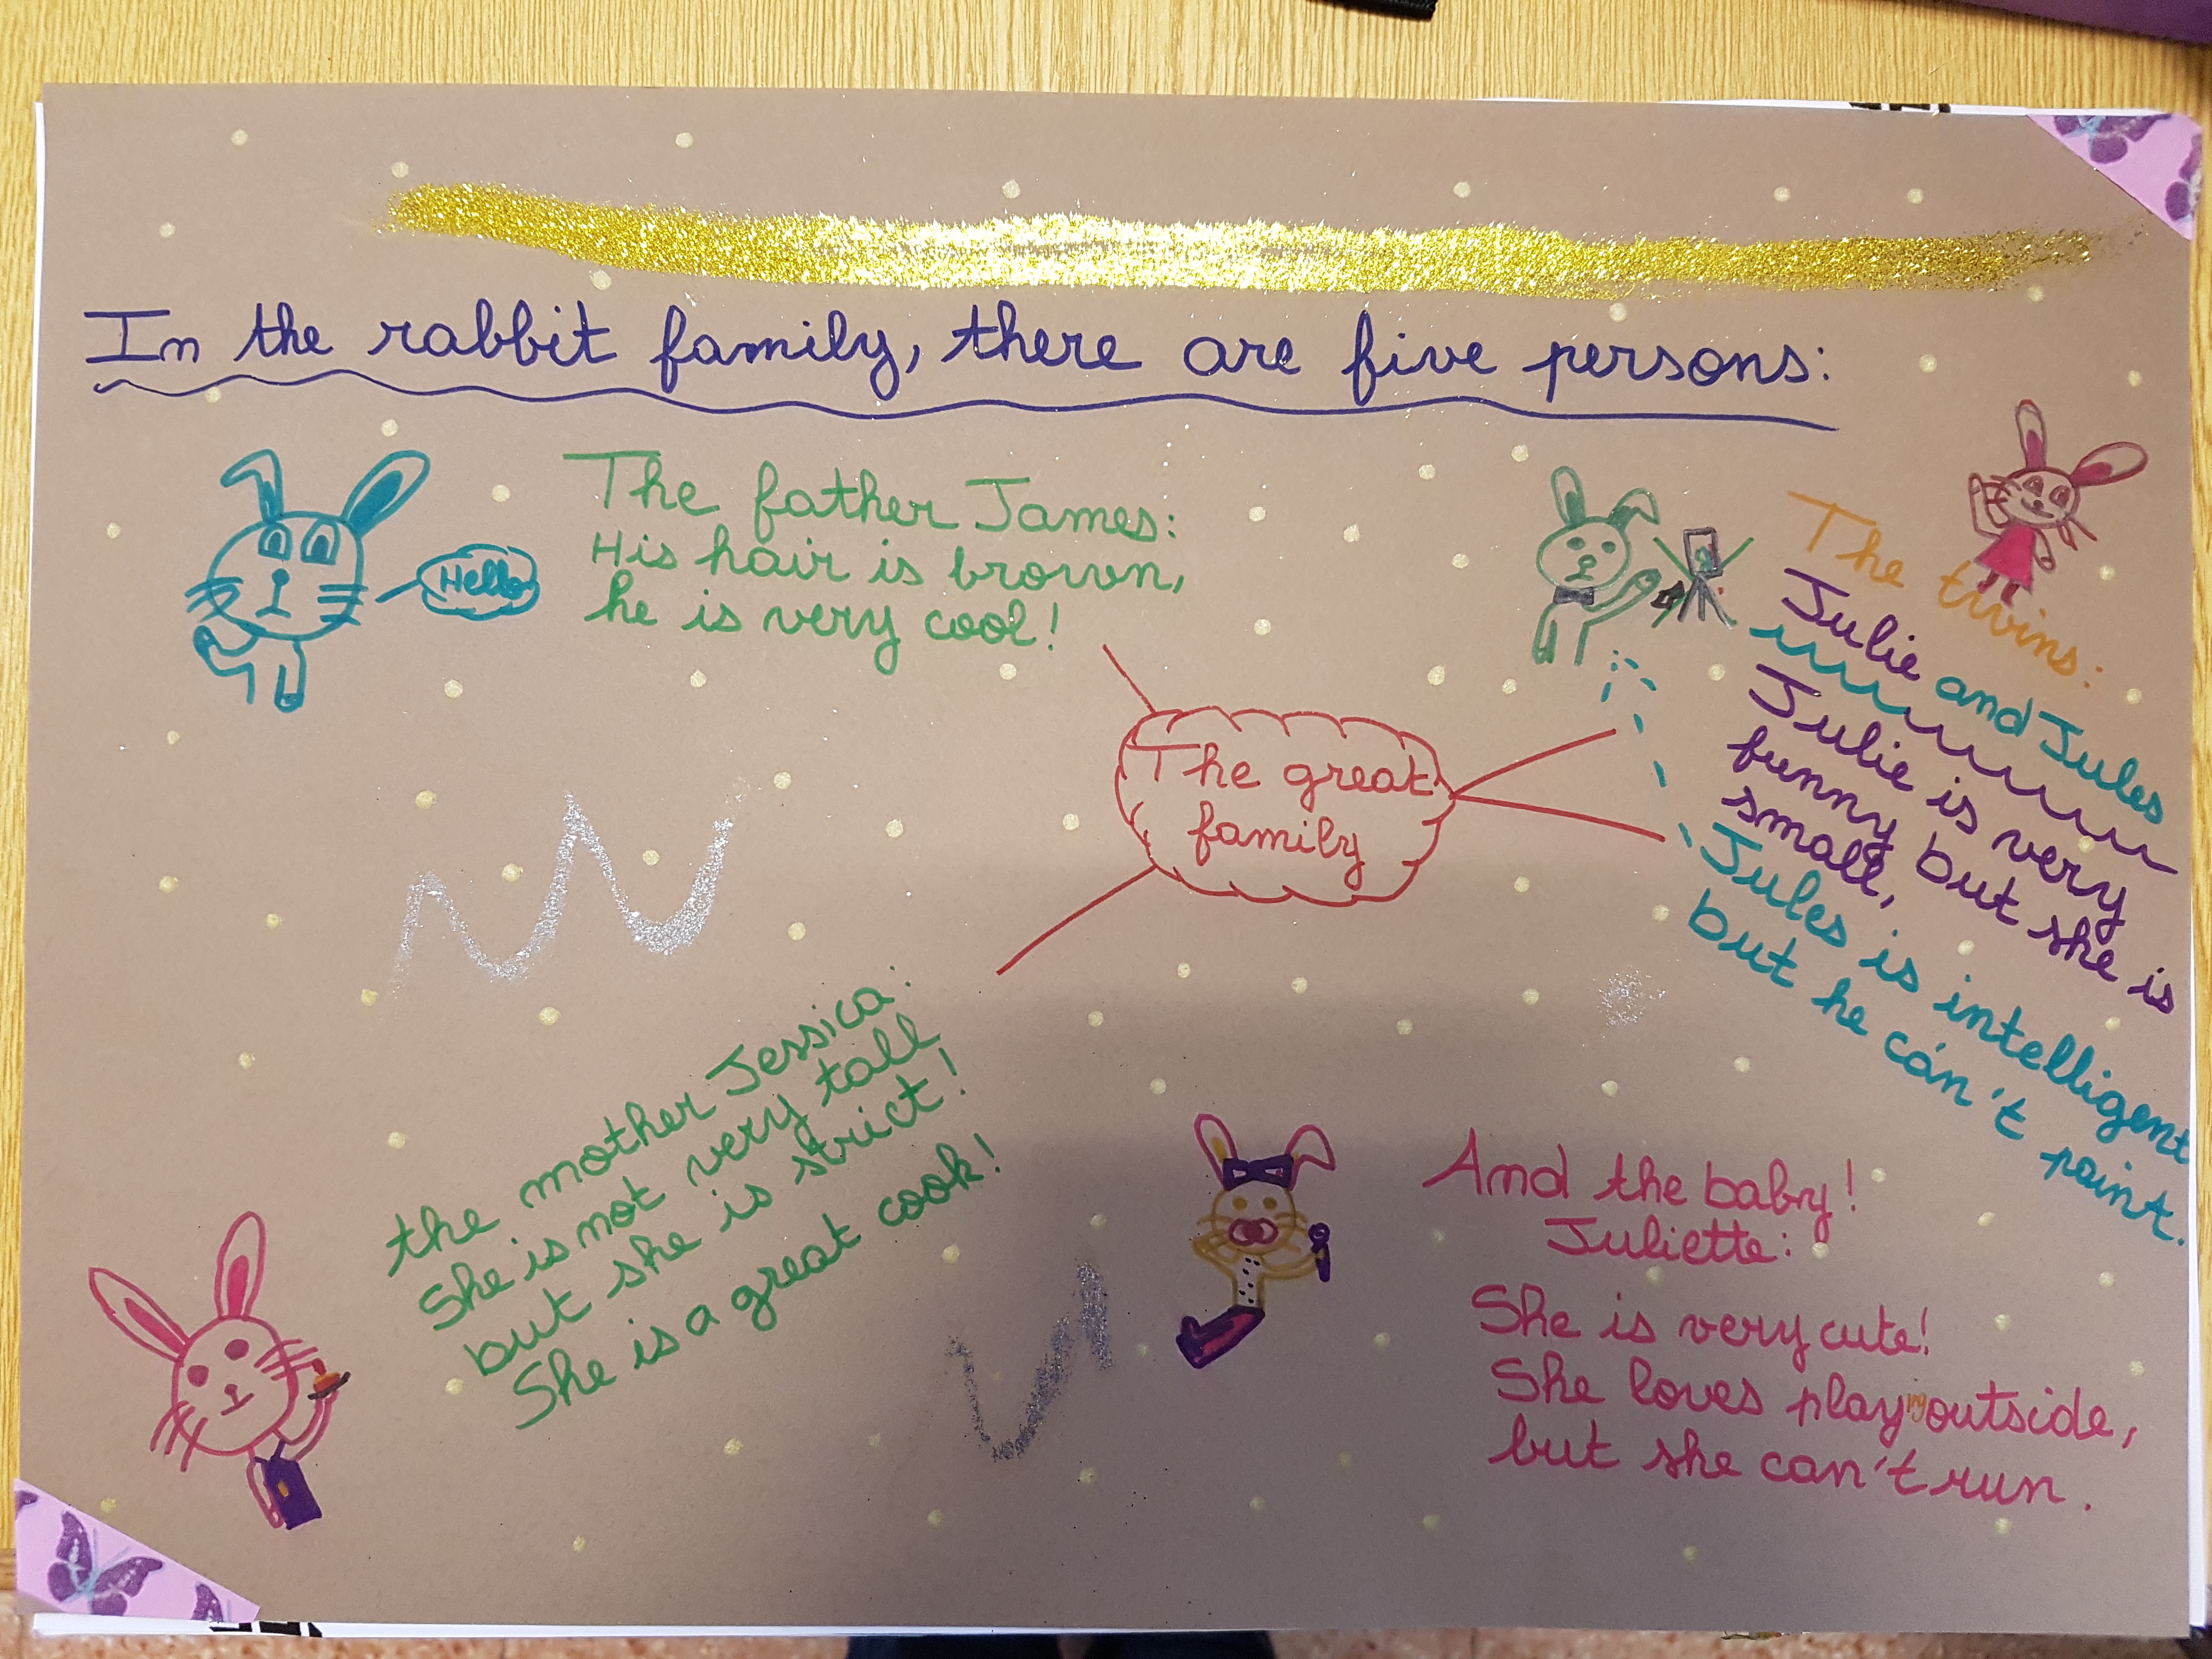 In the rabbit family, there are five persons:
Hello
The father James:
His hair is brown,
he is very cool!
The great
family
The twins:
Julie and Jules
Julie is very
funny but she is
small,
Jules is intelligent
but he can't paint.
the mother Jessica:
She is not very tall
but she is strict!
She is a great cook!
And the baby!
Juliette:
She is very cute!
She loves playing outside,
but she can't run.